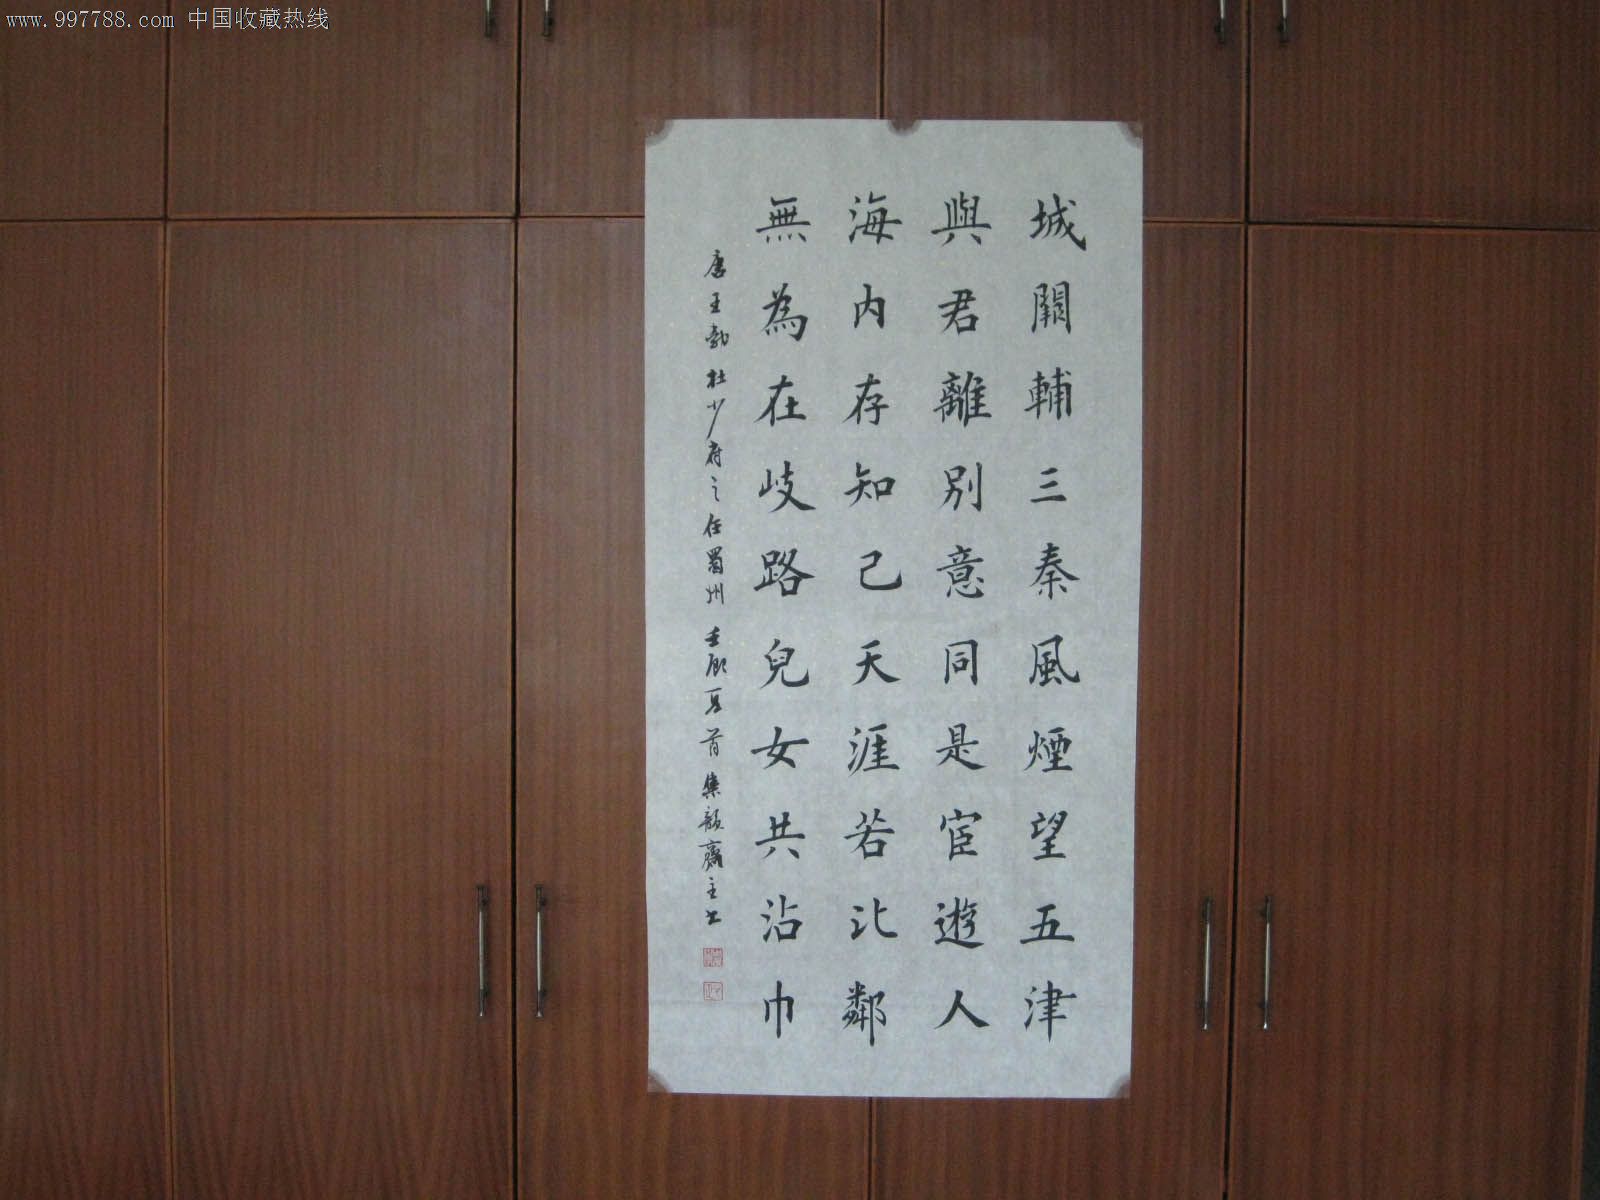 www.997788.com 中国收藏热线
城闕輔三秦風煙望五津
與君離別意同是宦遊人
海内存知己天涯若比鄰
無為在歧路兒女共沾巾
唐王勃杜少府之任蜀州 壬辰夏首集韻齋主书